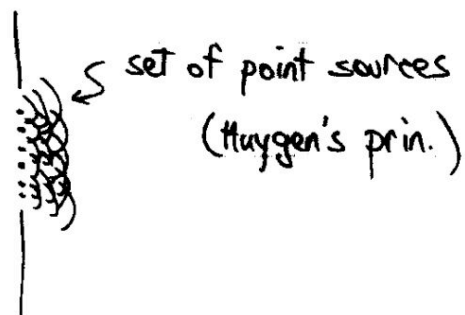 set of point sources
(Huygen's prin.)